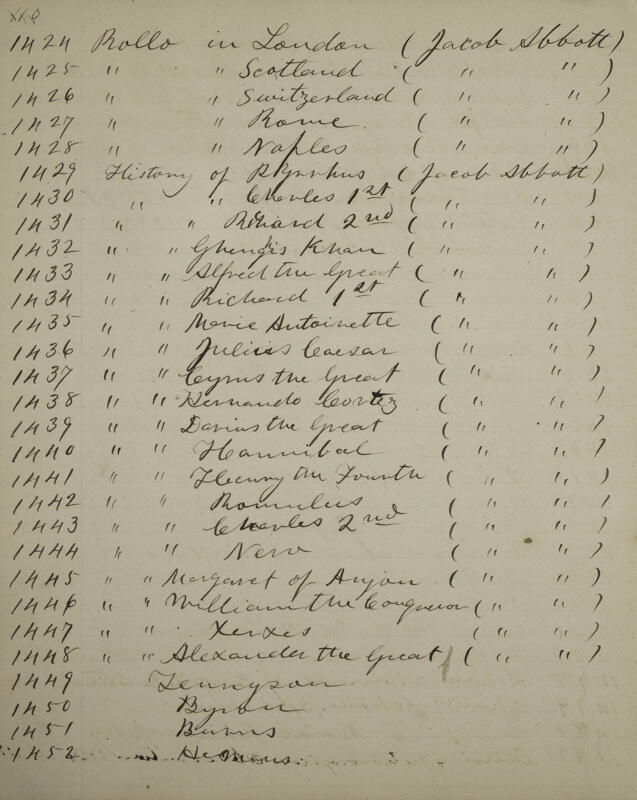 1424 Rollo in London (Jacob Abbott)
1425 " " Scotland ( " " )
1426 " " Switzerland ( " " )
1427 " " Rome ( " " )
1428 " " Naples ( " " )
1429 History of Pyrrhus (Jacob Abbott)
1430 " " Charles 1st ( " " )
1431 " " Richard 2nd ( " " )
1432 " " Ghengis Khan ( " " )
1433 " " Alfred the Great ( " " )
1434 " " Richard 1st ( " " )
1435 " " Marie Antoinette ( " " )
1436 " " Julius Caesar ( " " )
1437 " " Cyrus the Great ( " " )
1438 " " Hernando Cortez ( " " )
1439 " " Darius the Great ( " " )
1440 " " Hannibal ( " " )
1441 " " Henry the Fourth ( " " )
1442 " " Romulus ( " " )
1443 " " Charles 2nd ( " " )
1444 " " Nero ( " " )
1445 " " Margaret of Anjou ( " " )
1446 " " William the Conqueror ( " " )
1447 " " Xerxes ( " " )
1448 " " Alexander the Great ( " " )
1449 Tennyson
1450 Byron
1451 Burns
1452 Hemans